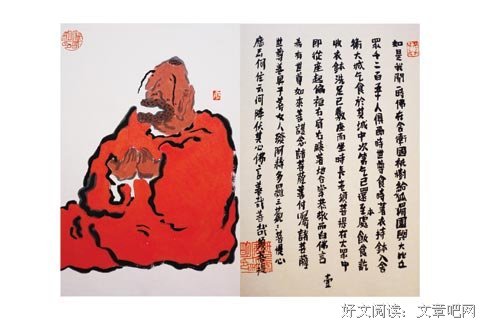 如是我聞一時佛在舍衛國祇樹給孤獨園與大比丘
眾千二百五十人俱爾時世尊食時著衣持鉢入舍
衛大城乞食於其城中次第乞已還至本處飯食訖
收衣鉢洗足已敷座而坐時長老須菩提在大眾中
即從座起偏袒右肩右膝著地合掌恭敬而白佛言
希有世尊如來善護念諸菩薩善付囑諸菩薩
世尊善男子善女人發阿耨多羅三藐三菩提心
應云何住云何降伏其心佛言善哉善哉須菩提
壹
好文阅读：文章吧网